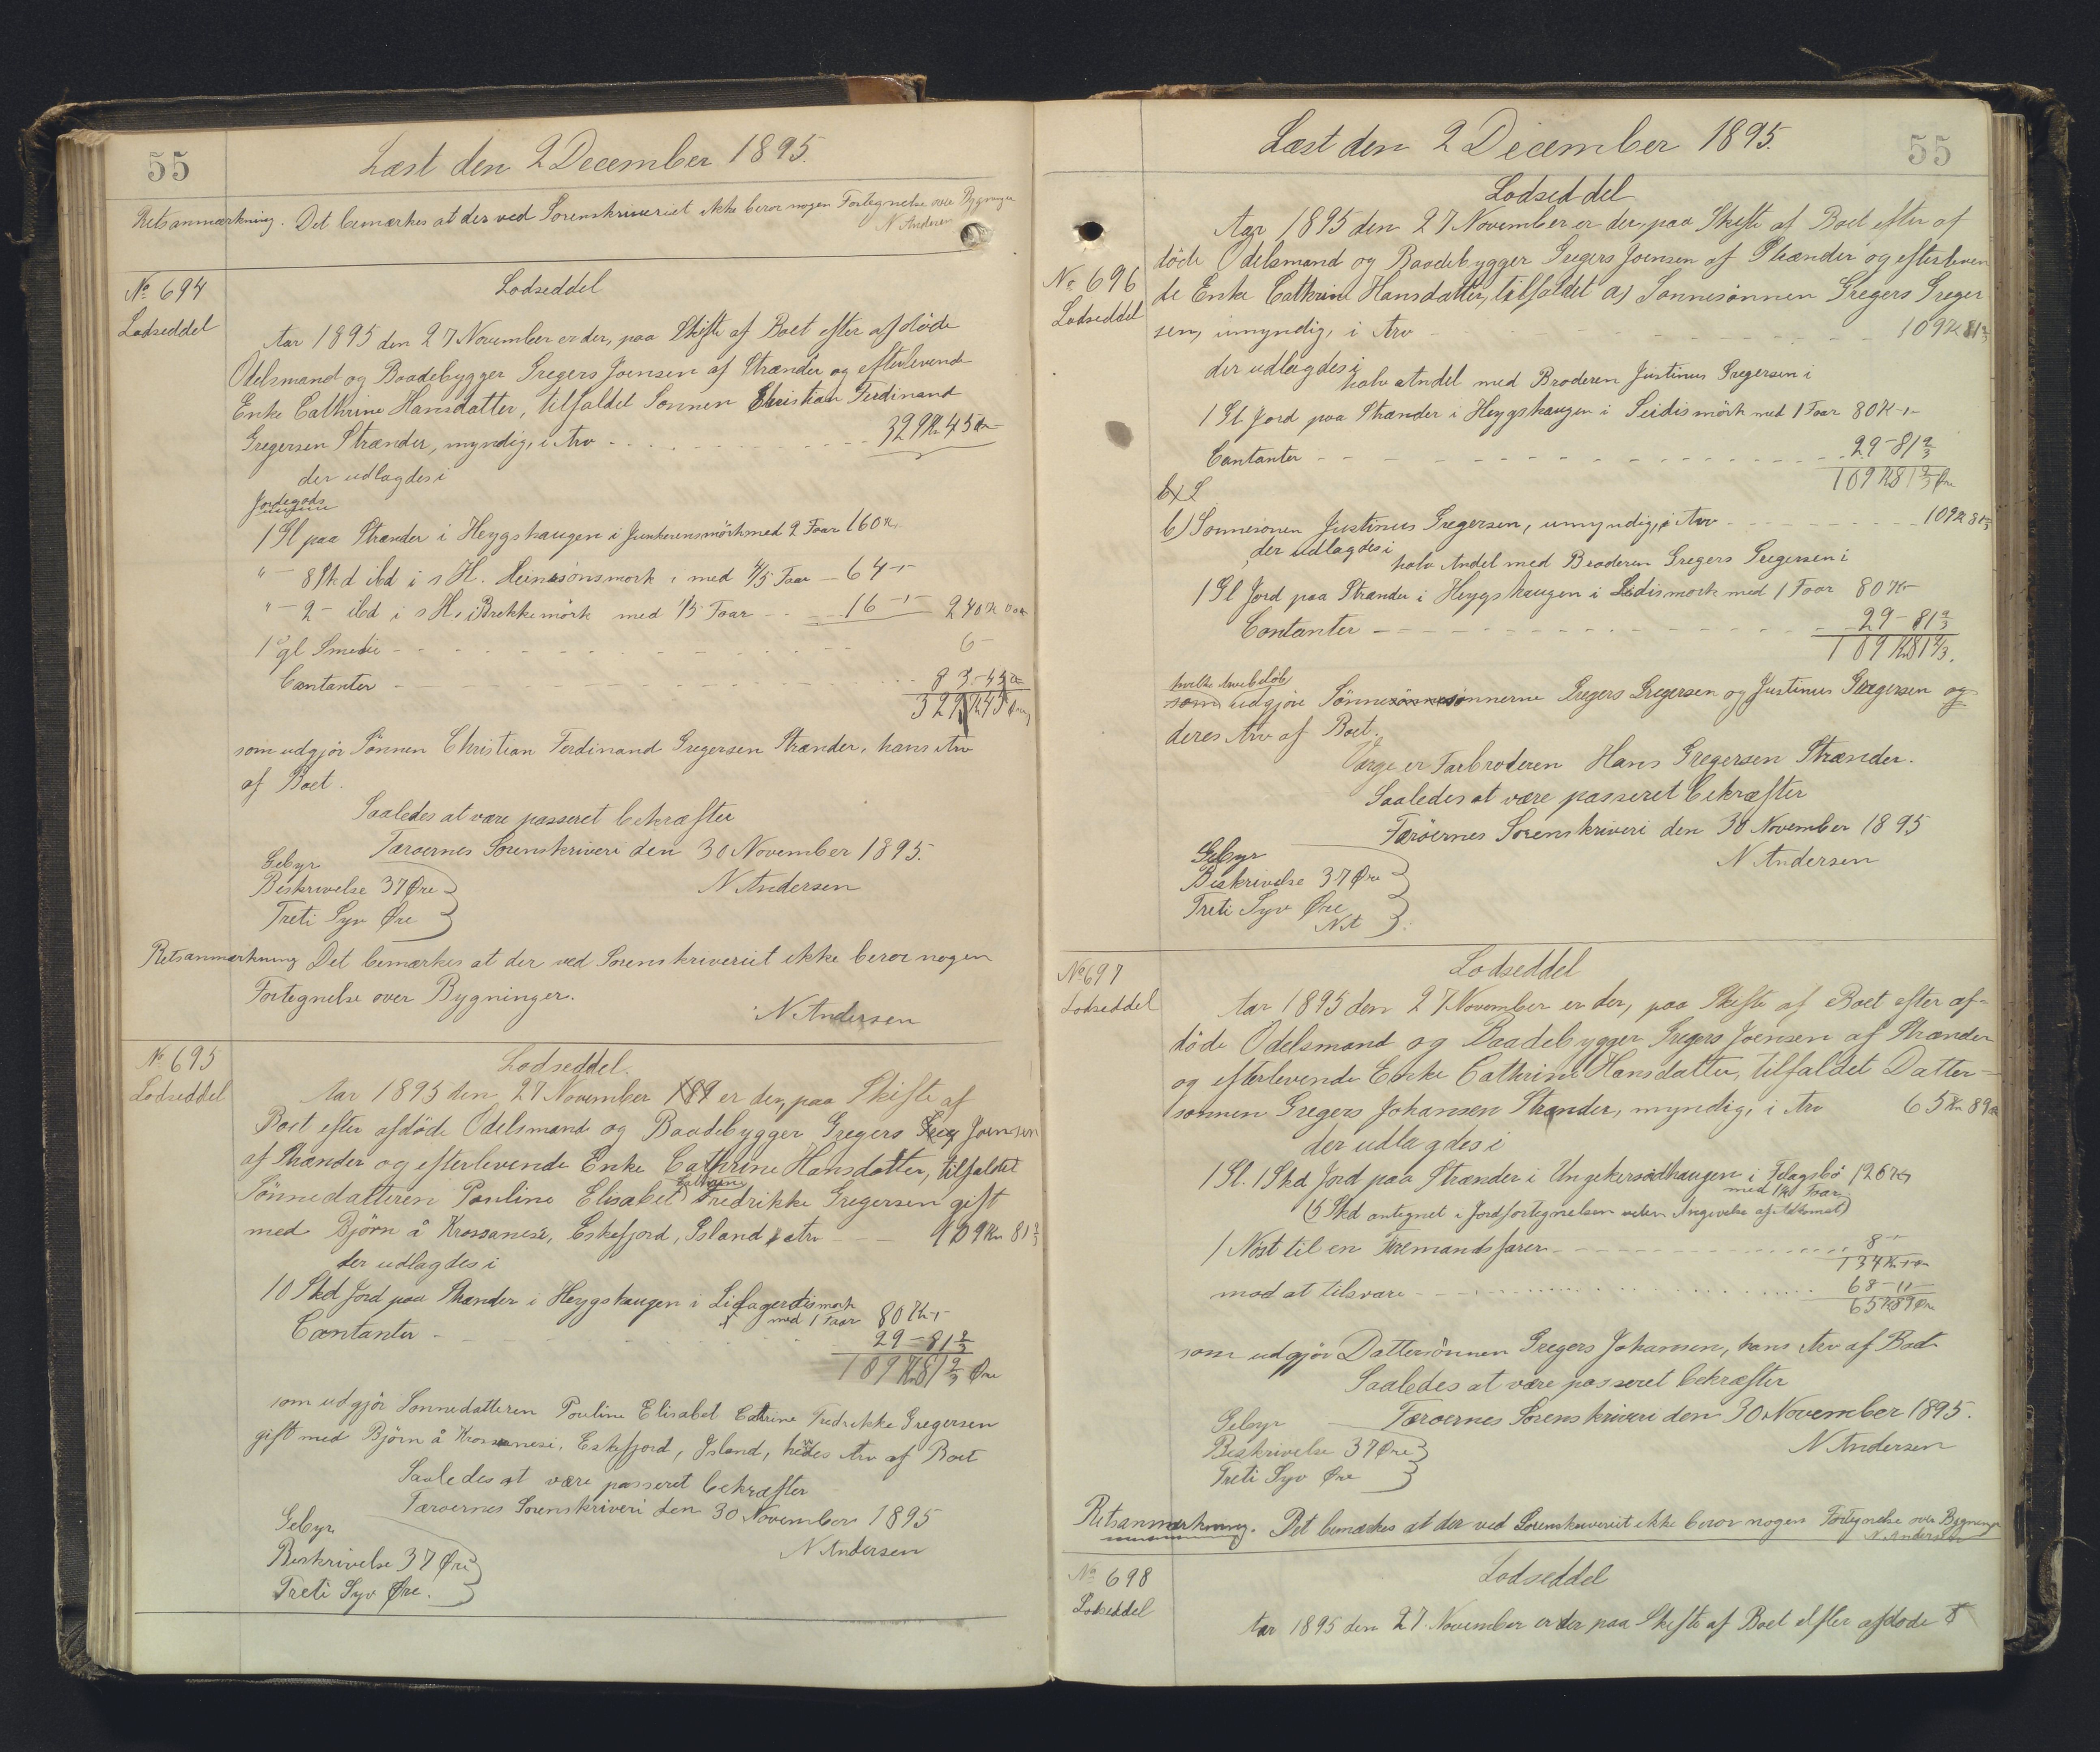 55
Læst den 2 December 1895.
Retsanmærkning. Det bemærkes at der ved Sorenskriveriet ikke beror nogen Fortegnelse over Bygninger
N Andersen
No 694
Lodseddel
Lodseddel
Aar 1895 den 27 November er der, paa Skifte af Boet efter afdöde
Odelsmand og Baadebygger Gregers Joensen af Strænder og efterlevende
Enke Cathrine Hansdatter, tilfaldet Sönnen Christian Ferdinand
Gregersen Strænder, myndig, i Arv 329 Kr 45 Øre
der udlagdes i
Jordegods
1 Gl paa Strænder i Heygshaugen i Junkerensmörk med 2 Faar 160 Kr
" - 8 Skd ibd i s H. Heinesönsmork, med 4/5 Faar - 64 - "
" - 2 - ibd i s H. i Brekkemörk med 1/5 Faar - 16 - " - 240 Kr 00 Øre
1 gl Smedie - 6 -
Contanter - 83 - 45 Øre
329 Kr 45 Øre
som udgjör Sönnen Christian Ferdinand Gregersen Strænder, hans Arv
af Boet.
Saaledes at være passeret bekræfter
Færöernes Sorenskriveri den 30 November 1895.
N Andersen
Gebyr
Beskrivelse 37 Øre
Treti Syv Øre
Retsanmærkning Det bemærkes at der ved Sorenskriveriet ikke beror nogen
Fortegnelse over Bygninger.
N. Andersen
No 695
Lodseddel
Lodseddel.
Aar 1895 den 27 November 189 er der, paa Skifte af
Boet efter afdöde Odelsmand og Baadebygger Gregers Greg Joensen
af Strænder og efterlevende Enke Cathrine Hansdatter, tilfaldet
Sönnedatteren Pauline Elisabet Cathrine Fredrikke Gregersen gift
med Björn å Krossanesi, Eskefjord, Island i Arv 109 Kr 81 2/3
der udlagdes i
10 Skd Jord paa Strænder i Heygshaugen i Lidagerdismork
med 1 Faar 80 Kr "
Contanter - 29 - 81 2/3
109 Kr 81 2/3 Øre
som udgjör Sonnedatteren Pouline Elisabet Catrine Fredrikke Gregersen
gift med Björn å Krossanesi, Eskefjord, Island, hendes Arv af Boet
Saaledes at være passeret bekræfter
Færoernes Sorenskriveri den 30 November 1895
N Andersen
Gebyr
Beskrivelse 37 Øre
Treti Syv Øre.
Læst den 2 December 1895.
55
No 696
Lodseddel
Lodseddel
Aar 1895 den 27 November er der, paa Skifte af Boet efter af
döde Odelsmand og Baadebygger Gregers Joensen af Strænder og efterleven
de Enke Cathrine Hansdatter, tilfaldet a) Sonnesönnen Gregers Greger
sen, umyndig, i Arv 109 Kr 81 2/3
der udlagdes i
halv Andel med Broderen Justinus Gregersen i
1 Gl Jord paa Strænder i Heygshaugen i Seidismörk med 1 Faar 80 Kr "
Contanter 29 - 81 2/3
109 Kr 81 2/3 Øre
b) S
b) Sonnesönen Justinus Gregersen, umyndig, i Arv 109 Kr 81 2/3
der udlagdes i
halv Andel med Broderen Gregers Gregersen i
1 Gl Jord paa Strænder i Heygshaugen i Seidismork med 1 Faar 80 Kr
Contanter 29 - 81 2/3
109 Kr 81 2/3.
hvilke Arvebeløb
som udgjöre Sönnesönnerne Gregers Gregersen og Justinus Gregersen og
deres Arv af Boet.
Værge er Farbroderen Hans Gregersen Strænder.
Saaledes at være passeret bekræfter
Færöernes Sorenskriveri den 30 November 1895
N Andersen
Gebyr
Beskrivelse 37 Øre
Treti Syv Øre
N A
No 697
Lodseddel
Lodseddel
Aar 1895 den 27 November er der, paa Skifte af Boet efter af-
döde Odelsmand og Baadebygger Gregers Joensen af Strænder
og efterlevende Enke Cathrine Hansdatter, tilfaldet Datter-
sonnen Gregers Johansen Strænder, myndig, i Arv 65 Kr 89 Øre
der udlagdes i
1 Gl. 1 Skd Jord paa Strænder i Ungekersadhaugen i Felagsbö 126 Kr
(5 Skd antegnet i Jordfortegnelsen uden Angivelse af Adkomst)
1 Nöst til en Firemandsfarer 8 "
134 Kr " Øre
mod at tilsvare 68 - 11 -
65 Kr 89 Øre
som udgjör Dattersönnen Gregers Johansen, hans Arv af Boet
Saaledes at være passeret bekræfter
Færoernes Sorenskriveri den 30 November 1895.
N Andersen
Gebyr
Beskrivelse 37 Øre
Treti Syv Øre
Retsanmærkning. Det bemærkes at der ved Sorenskriveriet ikke beror nogen Fortegnelse over Bygninger
N. Andersen
No 698
Lodseddel
Lodseddel
Aar 1895 den 27 November er der paa Skifte af Boet efter afdode